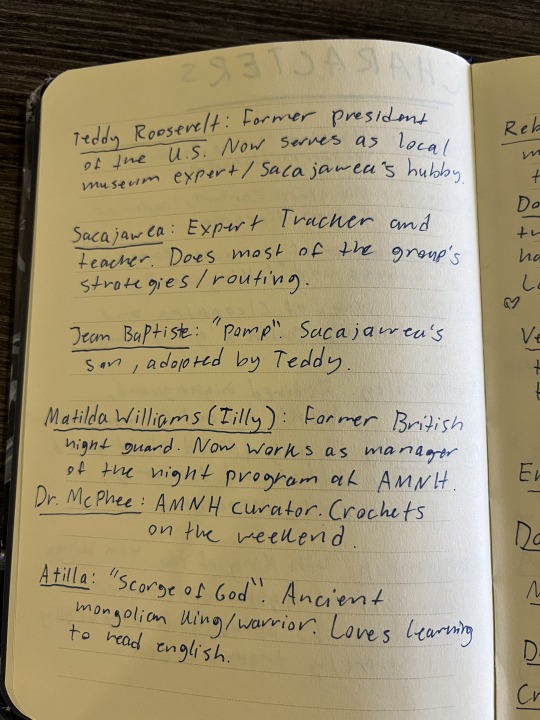 Teddy Roosevelt: Former president
of the U.S. Now serves as local
museum expert/Sacajawea's hubby.
Sacajawea: Expert Tracker and
teacher. Does most of the group's
strategies/routing.
Jean Baptiste: "Pomp". Sacajawea's
son, adopted by Teddy.
Matilda Williams (Tilly): Former British
night guard. Now works as manager
of the night program at AMNH.
Dr. McPhee: AMNH curator. Crochets
on the weekend.
Atilla: "Scorge of God". Ancient
mongolian king/warrior. Loves learning
to read english.
CHARACTERS
Reb
m
t
Do
tr
ha
Lo
Ve
t
t
Er
Do
N
D
Cr